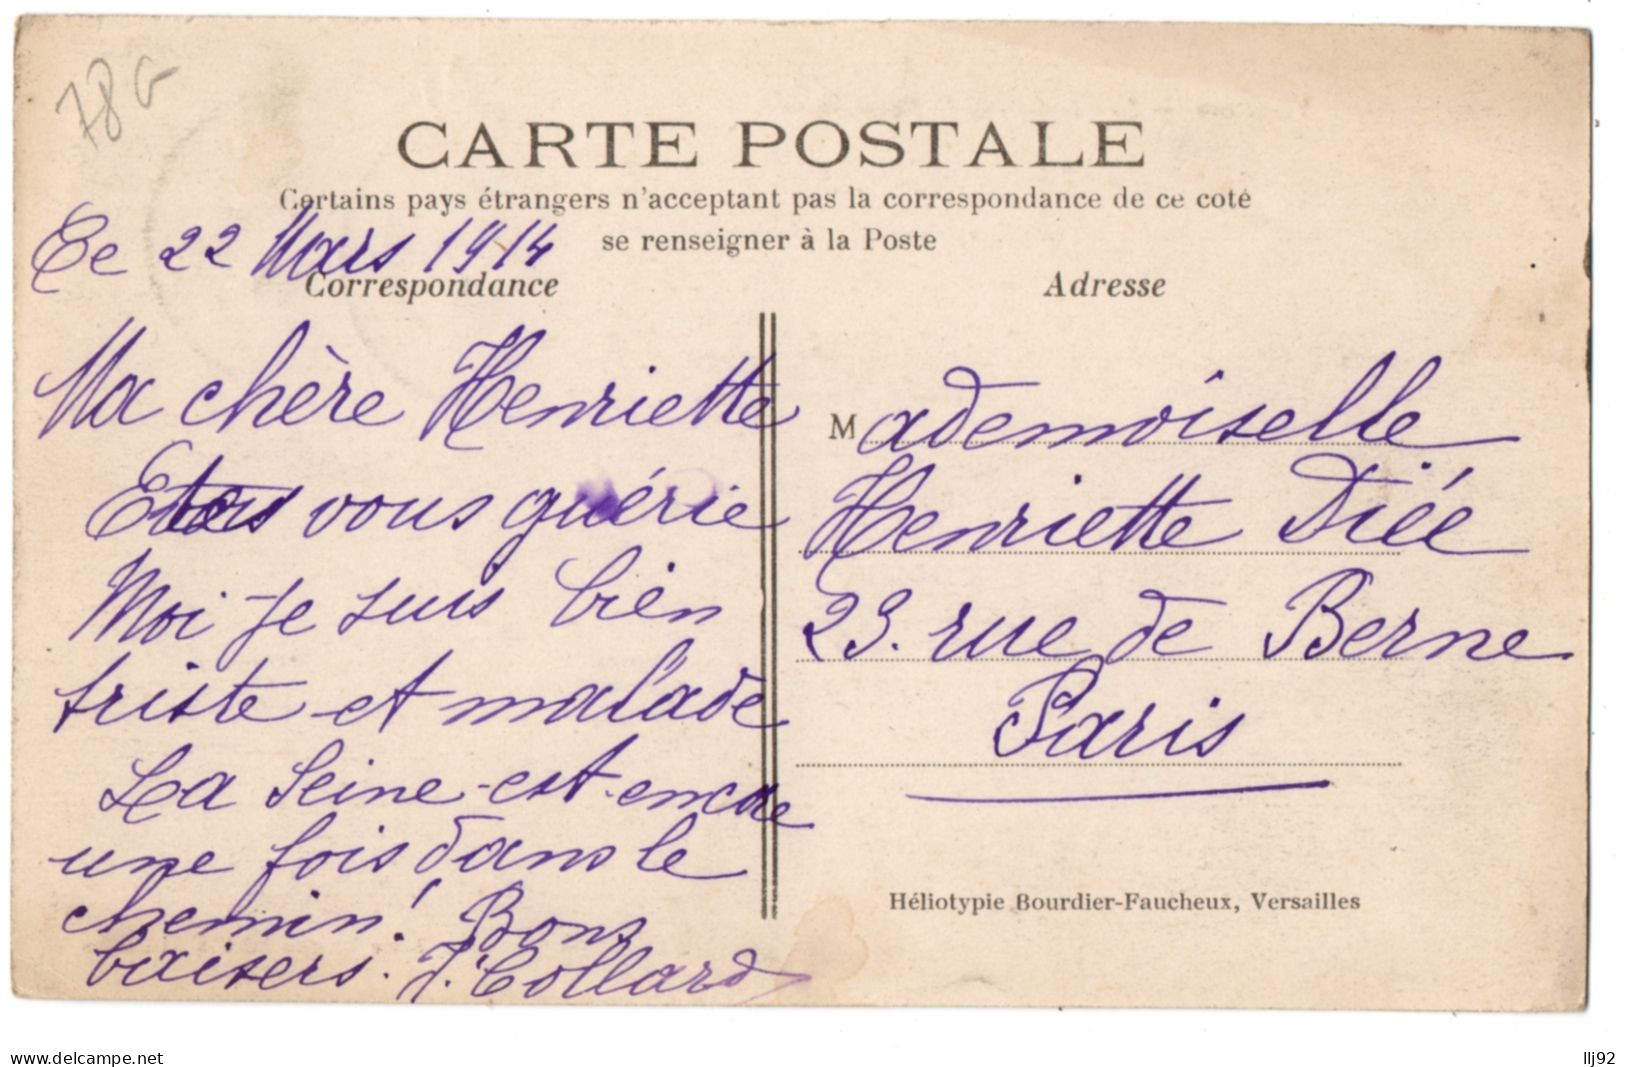 78G
CARTE POSTALE
Certains pays étrangers n'acceptent pas la correspondance de ce coté
se renseigner à la Poste
Ce 22 Mars 1914
Correspondance
Ma chère Henriette
Etes vous guérie
Moi je suis bien
triste et malade
La Seine est encore
une fois dans le
chemin! Bons
baisers. J. Collard
Adresse
Mademoiselle
Henriette Diée
23. rue de Berne
Paris
Héliotypie Bourdier-Faucheux, Versailles
www.delcampe.net
llj92